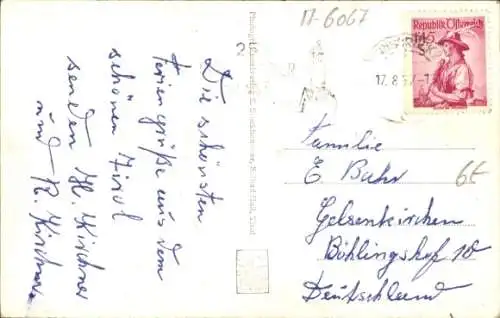 11-6067
Republik Österreich
17.8.57-1
Die schönsten
Feriengrüße aus dem
schönen Tirol
senden H. Kirchner
und R. Kirchner
Familie
E Bahr
Gelsenkirchen
Böhlingshof 10
Deutschland
6t